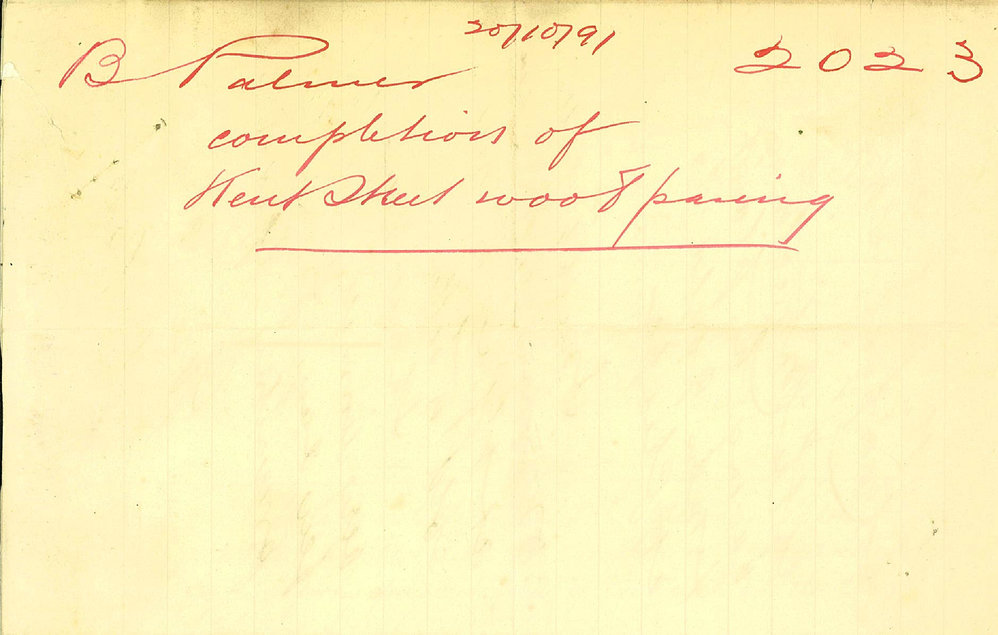 20/10/91
B Palmer 2023
completion of
Kent Street wood paving